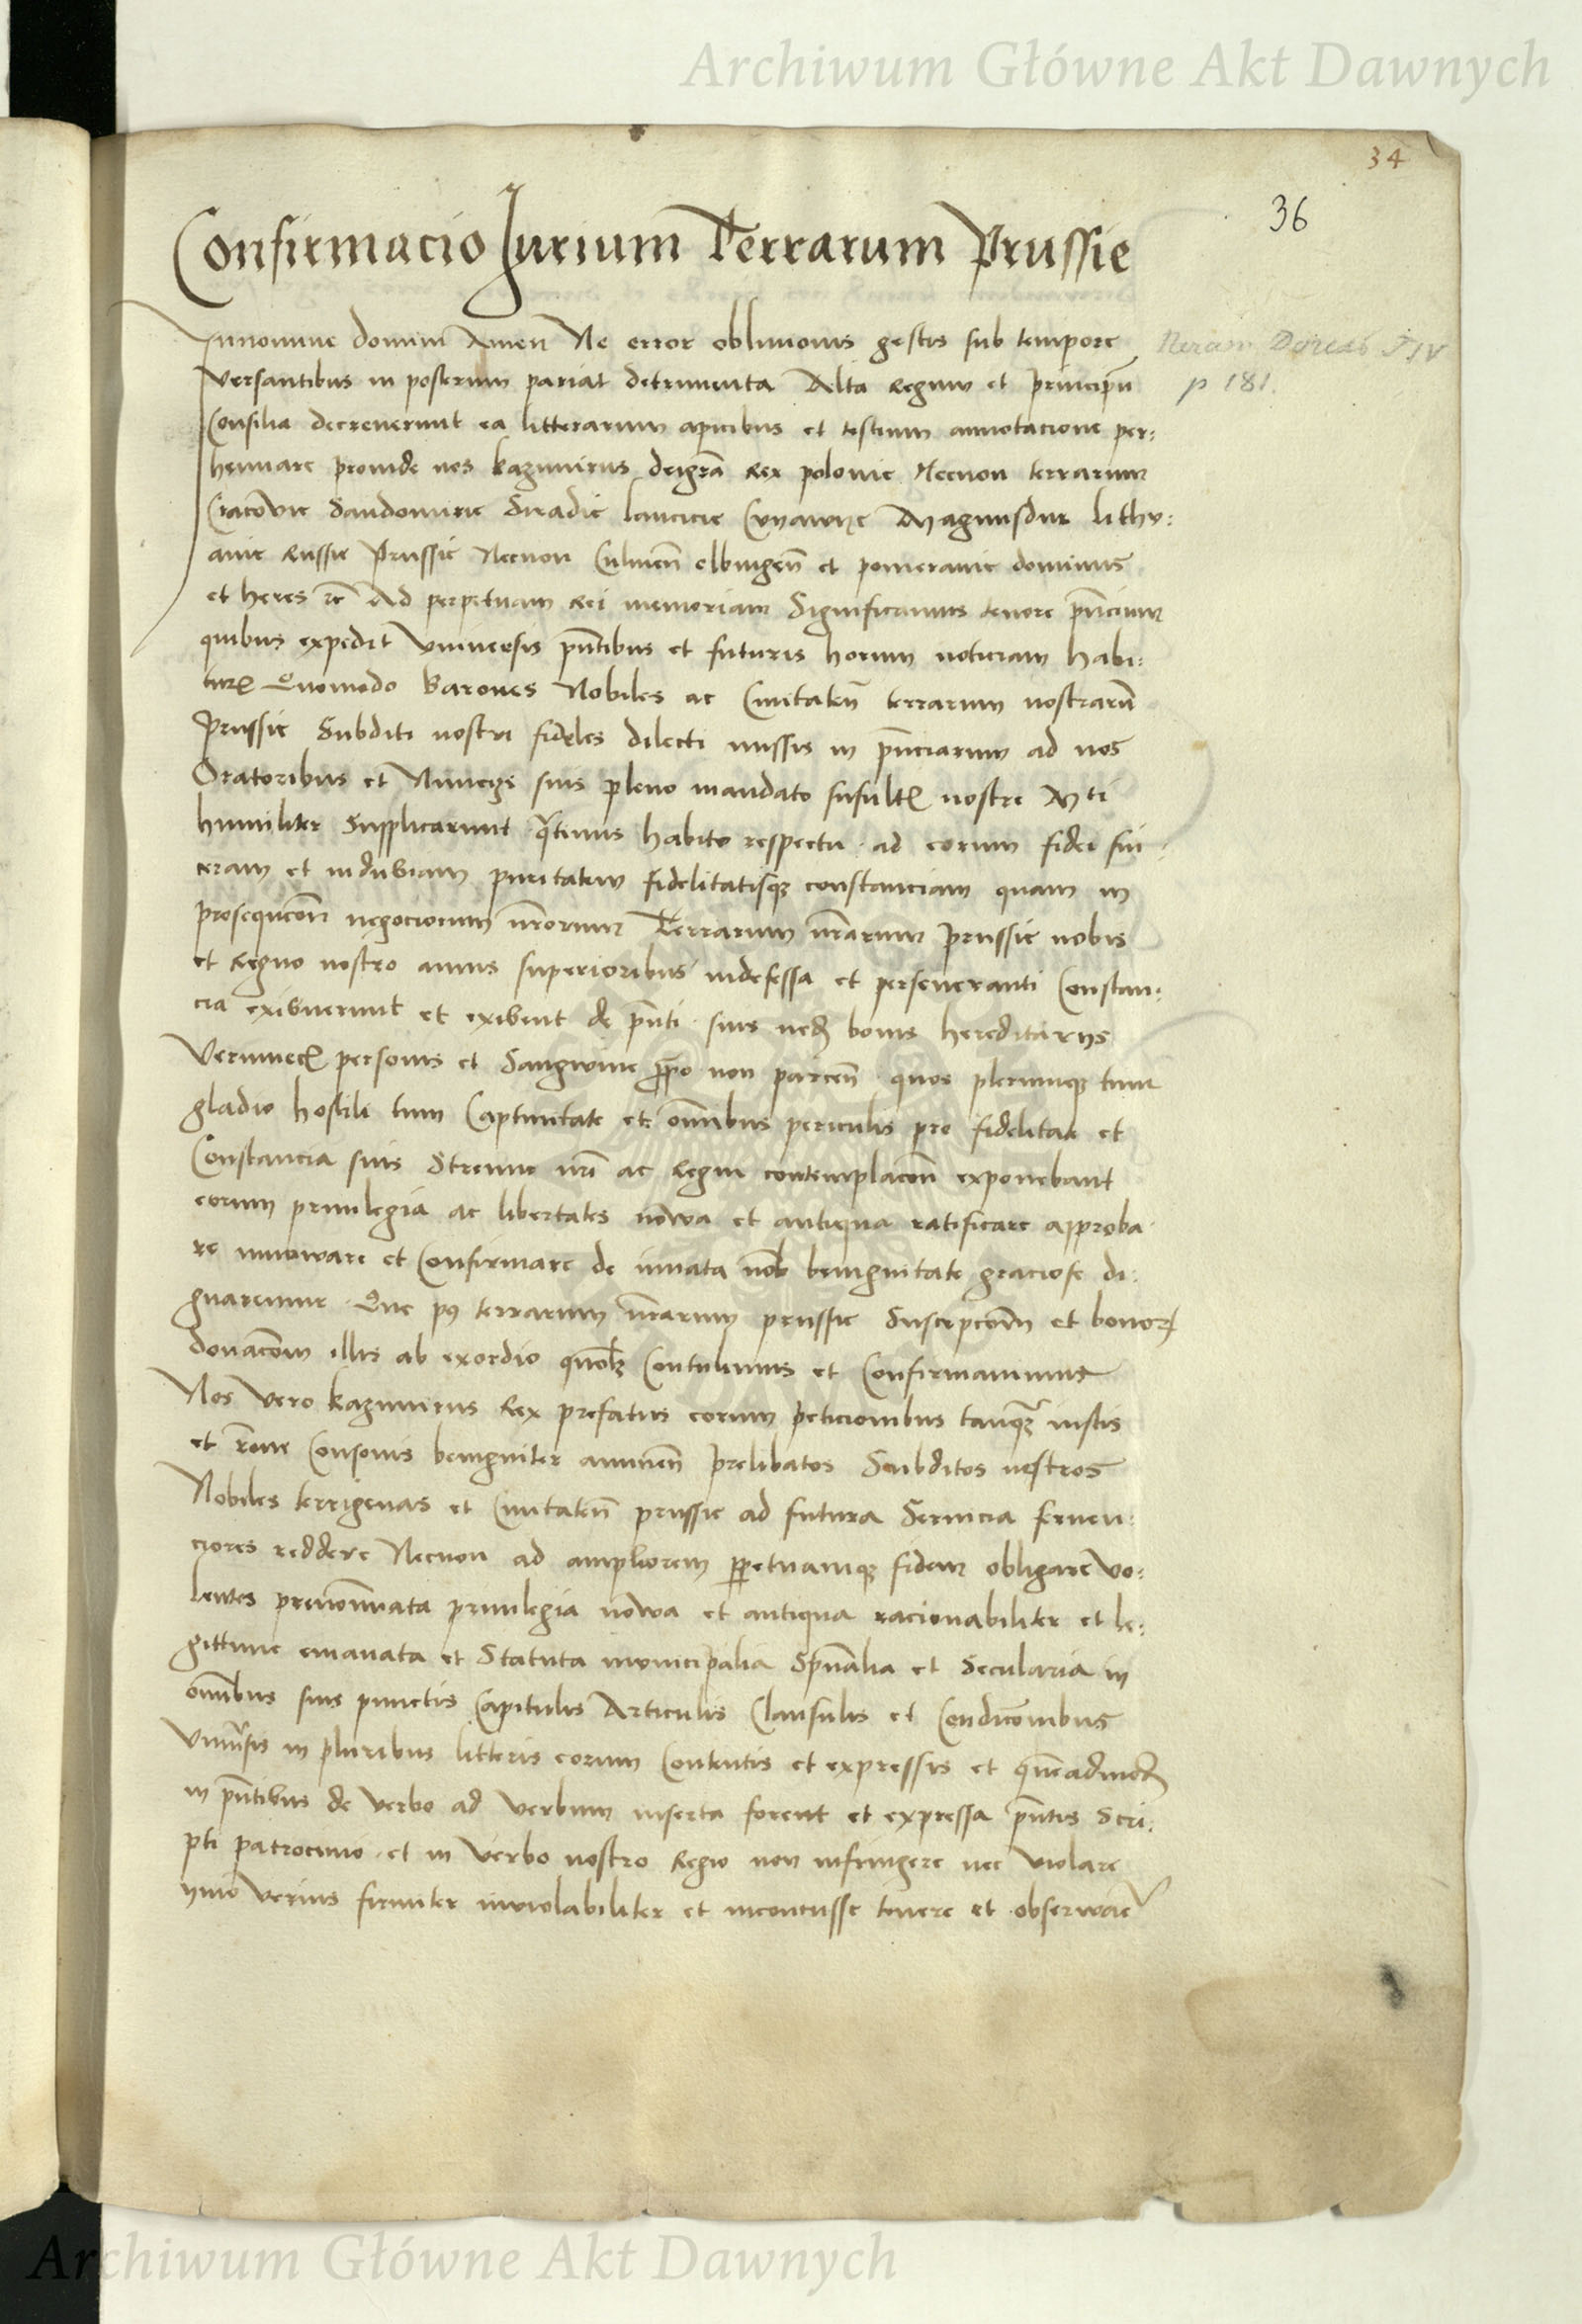 Archiwum Główne Akt Dawnych
34
36
Confirmacio Jurium Terrarum Prussie
Innomine domini Amen Ne error oblivionis gestis sub tempore
p 181.
versantibus in posterum pariat detrimenta Alta Regum et principu̅
Consilia decreverunt ea litterarum apicibus et testium annotacione per:
hennare proinde nos kazimirus deigra̅ Rex polonie Necnon terrarum
Cracovie Sandomirie Siradie lancicie Cuyawye Magnusdux lithv:
anie Russie Prussie Necnon Culmen̅ elbingen̅ et pomeranie dominus
et heres rc̅ Ad perpetuam Rei memoriam Significamus tenore pn̅cium
quibus expedit Universis pn̅tibus et futuris horum noticiam habi:
tur̅ Quomodo barones Nobiles ac Civitaten̅ terrarum nostraru̅
Prussie Subditi nostri fideles dilecti missis in pn̅ciarum ad nos
Oratoribus et Nuncijs suis pleno mandato fufult̅ nostre Mti
humiliter Supplicarunt q̅tinus habito respectu ad eorum fidei sin
ceram et indubiam puritatem fidelitatisqz constanciam quam in
prosequcon̅ negociorum nr̅orum Terrarum nr̅arum prussie nobis
et Regno nostro annis superioribus indefessa et perseveranti Constan:
cia exibuerunt et exibent de pn̅ti suis ned̅ bonis hereditarijs
Verumec̅ personis et Sangwine pp̅o non parcen̅ quos plerumqz tum
gladio hostili tum Captivitate et om̅ibus periculis pro fidelitate et
Constancia suis Strenue nr̅i ac Regni contemplacon̅ exponebant
eorum privilegia ac libertates nowa et antiqua ratificare approba
re innoware et Confirmare de innata nob̅ benignitate graciose di:
gnaremur Que p9 terrarum nr̅arum prussie Suscepcom̅ et bonorꝝ
donacom̅ illis ab exordio quol̅z Contulimus et Confirmavimus
Nos Vero kazimirus Rex prefatus eorum peticionibus tanqz̅ iustis
et ro̅ne Consonis benigniter annuen̅ prelibatos Subditos nostros
Nobiles terrigenas et Civitaten̅ prussie ad futura Servicia ferven:
ciores reddere Necnon ad ampliorem p̲petuamqz fidem obligare vo:
lentes prenom̅inata privilegia nowa et antiqua racionabiliter et le:
gittime emanata et Statuta municipalia Spu̅alia et Secularia in
om̅ibus suis punctis Capitulis Articulis Clausulis et Condicionibus
Univr̅sis in pluribus litteris eorum Contentis et expressis et que̅admod̅
in pn̅tibus de verbo ad verbum inserta forent et expressa pn̅tis Scri:
pti patrocinio et in verbo nostro Regio non infringere nec violare
ymo verius firmiter inviolabiliter et inconcusse tenere et observare
Archiwum Główne Akt Dawnych